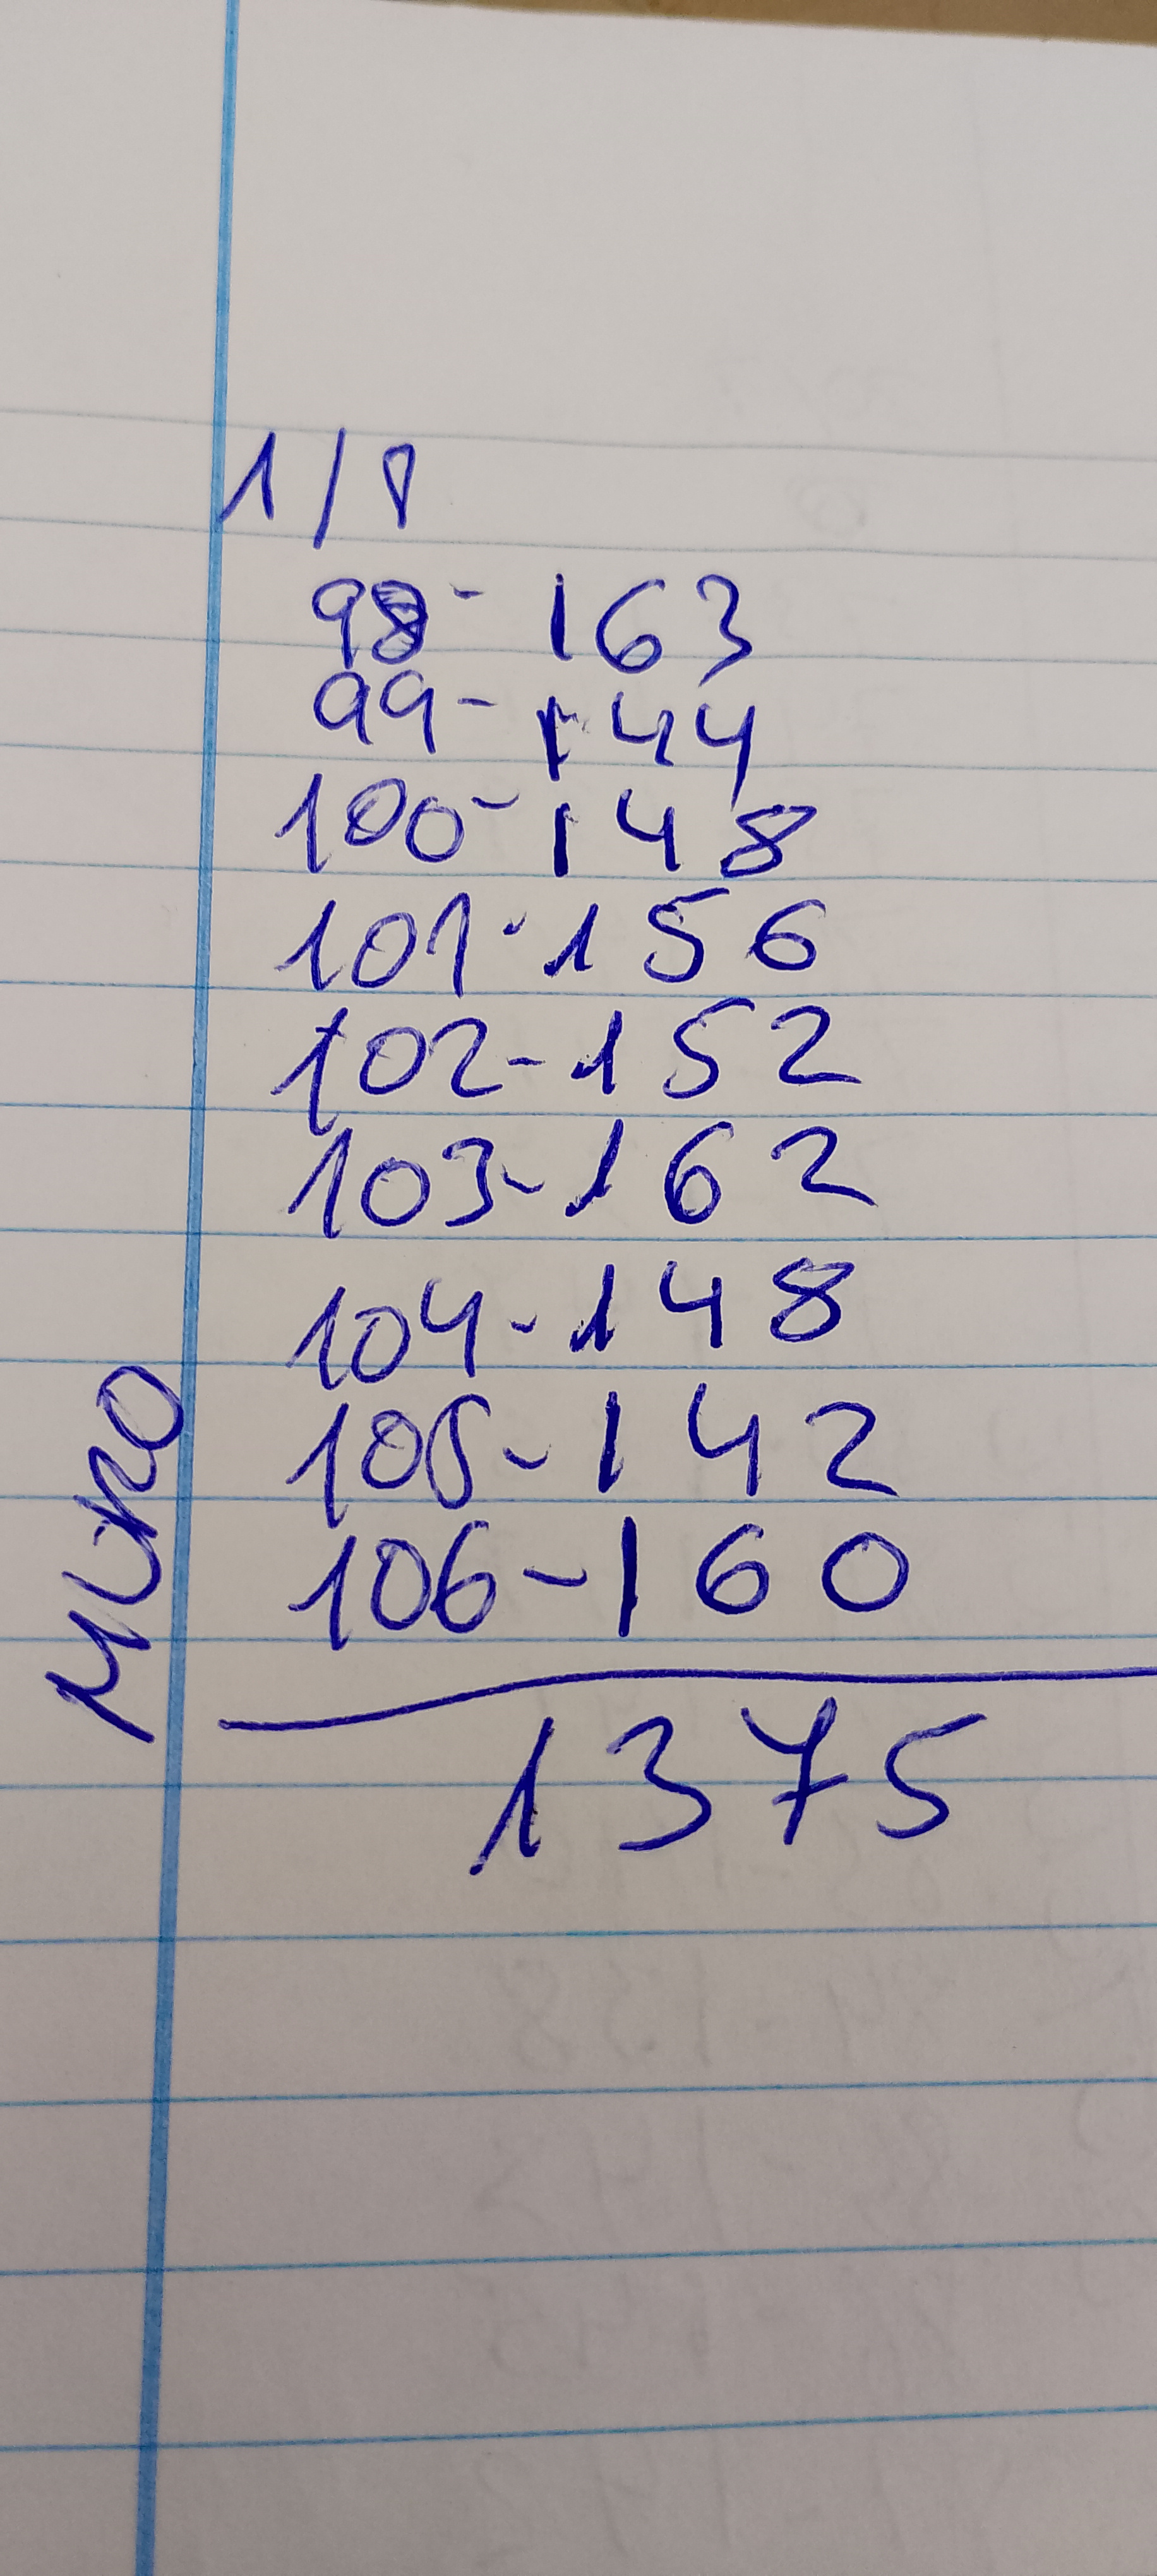 1/8
98-163
99-144
100-148
101-156
102-152
103-162
104-148
105-142
106-160
1375